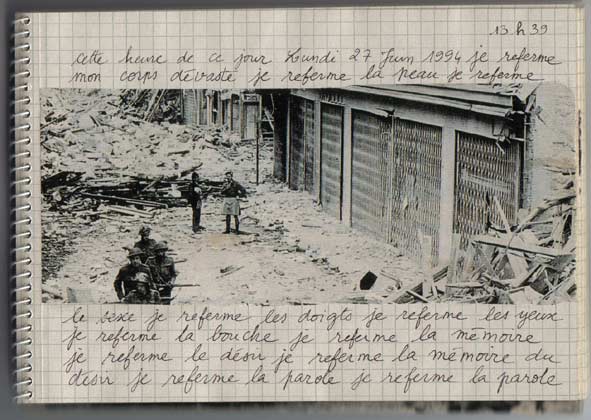 13 h 39
cette heure de ce jour Lundi 27 Juin 1994 je referme
mon corps dévasté je referme la peau je referme
le sexe je referme les doigts je referme les yeux
je referme la bouche je referme la mémoire
je referme le désir je referme la mémoire du
désir je referme la parole je referme la parole